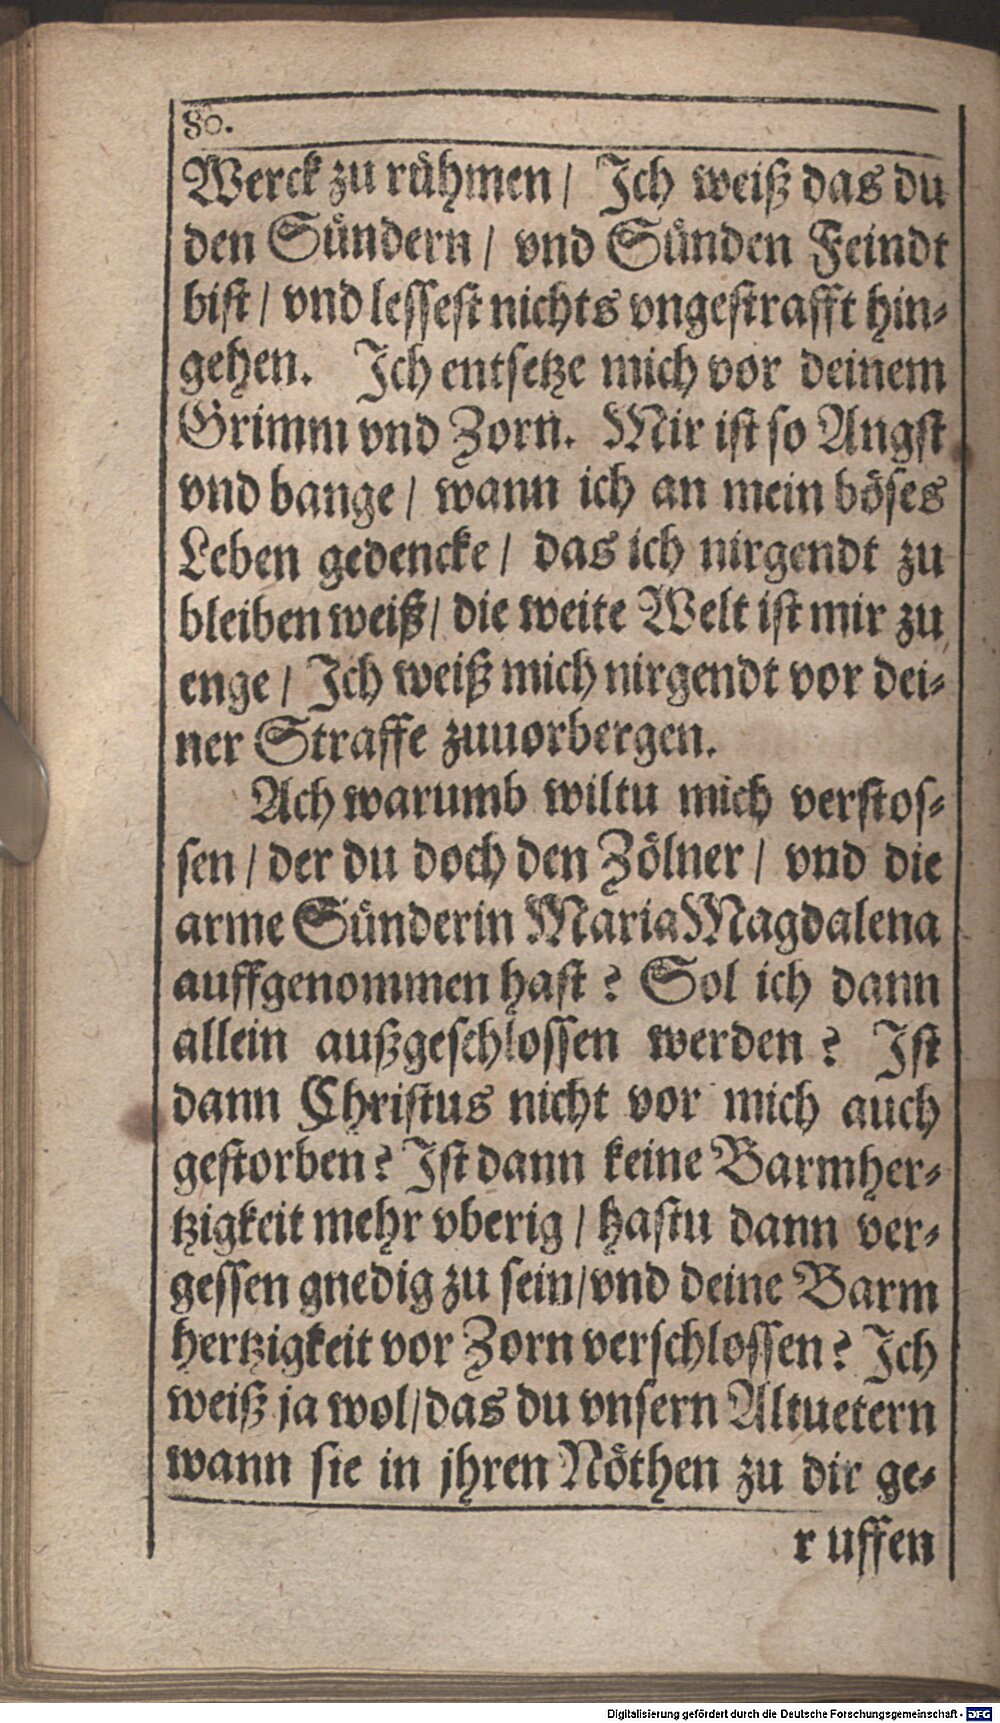 80.
Werck zu rühmen / Ich weiß das du
den Sündern / vnd Sünden Feindt
bist / vnd lessest nichts vngestrafft hin-
gehen. Ich entsetze mich vor deinem
Grimm vnd Zorn. Mir ist so Angst
vnd bange / wann ich an mein böses
Leben gedencke / das ich nirgendt zu
bleiben weiß / die weite Welt ist mir zu
enge / Ich weiß mich nirgendt vor dei-
ner Straffe zuuorbergen.
Ach warumb wiltu mich verstos-
sen / der du doch den Zölner / vnd die
arme Sünderin Maria Magdalena
auffgenommen hast? Sol ich dann
allein außgeschlossen werden? Ist
dann Christus nicht vor mich auch
gestorben? Ist dann keine Barmher-
tzigkeit mehr vberig / hastu dann ver-
gessen gnedig zu sein / vnd deine Barm
hertzigkeit vor Zorn verschlossen? Ich
weiß ja wol / das du vnsern Altuetern
wann sie in jhren Nöthen zu dir ge-
r uffen
Digitalisierung gefördert durch die Deutsche Forschungsgemeinschaft - DFG